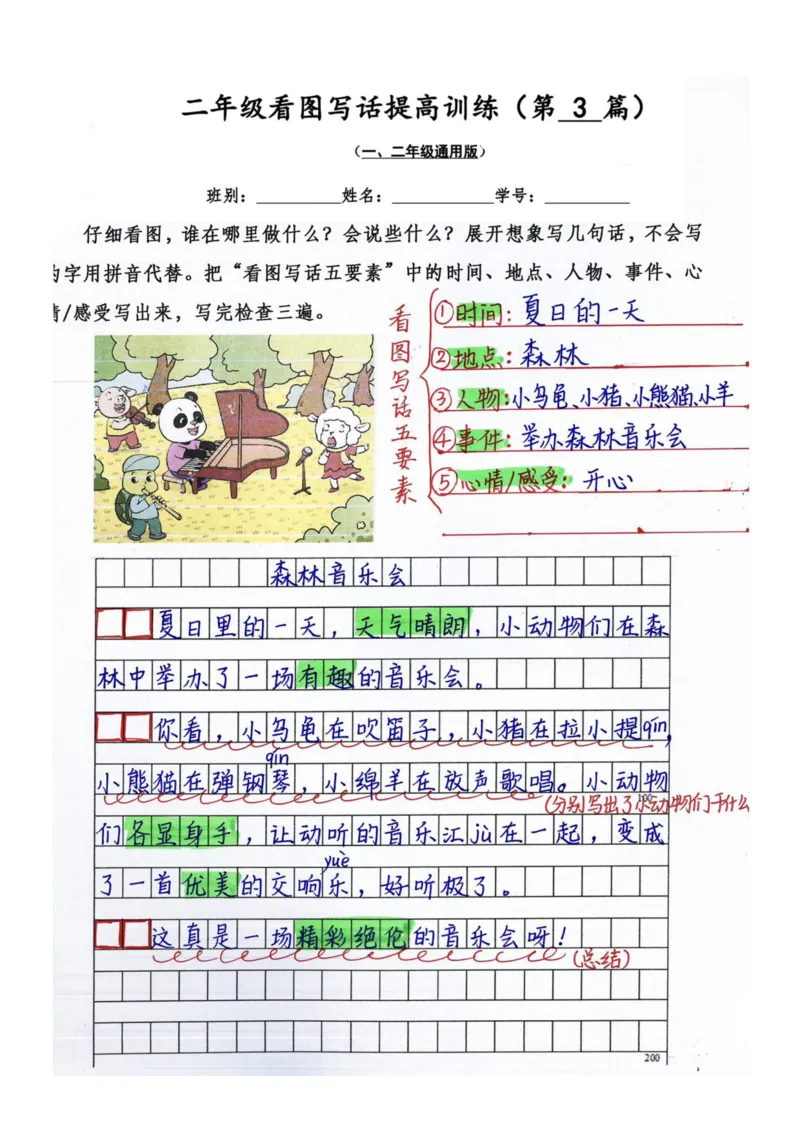 二年级看图写话提高训练（第 3 篇）
（一、二年级通用版）
班别：__________姓名：____________学号：__________
仔细看图，谁在哪里做什么？会说些什么？展开想象写几句话，不会写
的字用拼音代替。把“看图写话五要素”中的时间、地点、人物、事件、心
情/感受写出来，写完检查三遍。
看图写话五要素
①时间：夏日的一天
②地点：森林
③人物：小乌龟、小猪、小熊猫、小羊
④事件：举办森林音乐会
⑤心情/感受：开心
森林音乐会
夏日里的一天，天气晴朗，小动物们在森
林中举办了一场有趣的音乐会。
你看，小乌龟在吹笛子，小猪在拉小提qín，
qín
小熊猫在弹钢琴，小绵羊在放声歌唱。小动物
(分别写出了小动物们干什么
们各显身手，让动听的音乐汇jù在一起，变成
yuè
了一首优美的交响乐，好听极了。
这真是一场精彩绝伦的音乐会呀！
(总结)
200